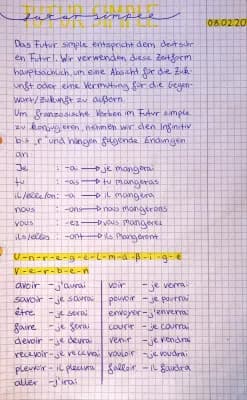 FUTUR SIMPLE
futur simple
08.02.20
Das Futur simple entspricht dem deutsch-
en Futur I. Wir verwenden diese Zeitform
hauptsächlich, um eine Absicht für die Zuk-
unft oder eine Vermutung für die Gegen-
wart/Zukunft zu äußern.
Um französische Verben im Futur simple
zu konjugieren, nehmen wir den Infinitiv
bis „r" und hängen folgende Endungen
an:
Je : -ai → je mangerai
tu : -as → tu mangeras
il/elle/on : -a → il mangera
nous : -ons → nous mangerons
vous : -ez → vous mangerez
ils/elles : -ont → ils mangeront
U-n-r-e-g-e-l-m-ä-ß-i-g-e
V-e-r-b-e-n
avoir - j'aurai voir - je verrai
savoir - je saurai pouvoir - je pourrai
être - je serai envoyer - j'enverrai
faire - je ferai courir - je courrai
devoir - je devrai venir - je viendrai
recevoir - je recevrai vouloir - je voudrai
pleuvoir - il pleuvra falloir - il faudra
aller - j'irai